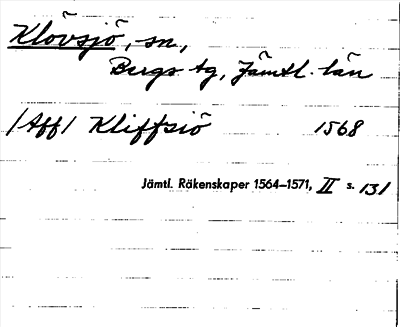 Klövsjö, sn,
Bergs tg, Jämtl. län
/Aff/ Kliffsiö 1568
Jämtl. Räkenskaper 1564–1571, II s. 131